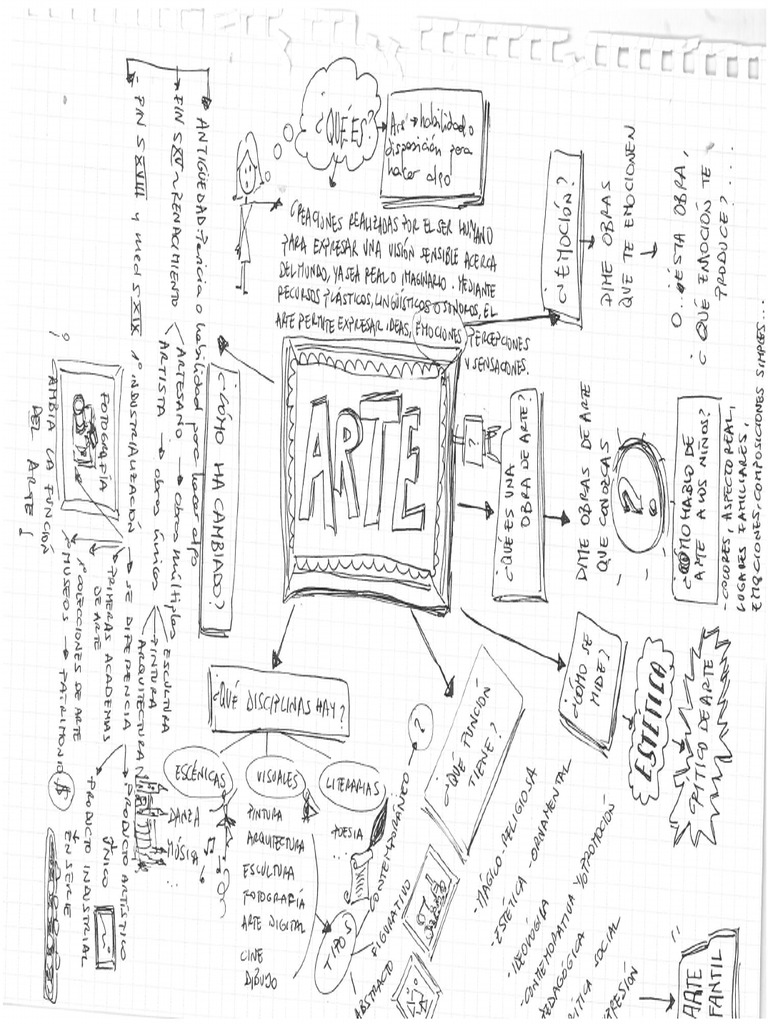 ¿QUÉ ES?
Ars → habilidad o
disposición para
hacer algo
CREACIONES REALIZADAS POR EL SER HUMANO
PARA EXPRESAR UNA VISIÓN SENSIBLE ACERCA
DEL MUNDO, YA SEA REAL O IMAGINARIO. MEDIANTE
RECURSOS PLÁSTICOS, LINGÜÍSTICOS O SONOROS, EL
ARTE PERMITE EXPRESAR IDEAS, EMOCIONES, PERCEPCIONES
Y SENSACIONES.
¿EMOCIÓN?
DIME OBRAS
QUE TE EMOCIONEN
O... ¿ESTA OBRA,
¿QUÉ EMOCIÓN TE
PRODUCE?...
ARTE
¿QUÉ ES UNA
OBRA DE ARTE?
?
DIME OBRAS DE ARTE
QUE CONOZCAS
?
¿CÓMO HABLO DE
ARTE A LOS NIÑOS?
- COLORES, ASPECTO REAL,
LUGARES FAMILIARES,
EMOCIONES, COMPOSICIONES SIMPLES...
¿CÓMO SE
MIDE?
ESTÉTICA
CRÍTICO DE ARTE
¿QUÉ FUNCIÓN
TIENE?
- MÁGICO-RELIGIOSA
- ESTÉTICA-ORNAMENTAL
- IDEOLÓGICA
- CONMEMORATIVA Y/O PROMOCIÓN
PEDAGÓGICA
CRÍTICA SOCIAL
ARTE
¿QUÉ DISCIPLINAS HAY?
ESCÉNICAS
DANZA
MÚSICA
VISUALES
PINTURA
ARQUITECTURA
ESCULTURA
FOTOGRAFÍA
ARTE DIGITAL
CINE
DIBUJO
LITERARIAS
POESÍA
TIPOS
CONTEMPORÁNEO → ?
FIGURATIVO
ABSTRACTO
¿CÓMO HA CAMBIADO?
ANTIGÜEDAD - Pericia o habilidad para hacer algo
FIN S XV ~ RENACIMIENTO
ARTESANO → obras múltiples
ARTISTA → obras únicas
ESCULTURA
PINTURA
ARQUITECTURA
FIN S XVIII y med S XIX 1º INDUSTRIALIZACIÓN → SE DIFERENCIA
PRODUCTO ARTÍSTICO
ÚNICO
PRODUCTO INDUSTRIAL
EN SERIE
PRIMERAS ACADEMIAS
DE ARTE
1º COLECCIONES DE ARTE
1º MUSEOS → PATRIMONIO $
FOTOGRAFÍA
¡CAMBIA LA FUNCIÓN
DEL ARTE!